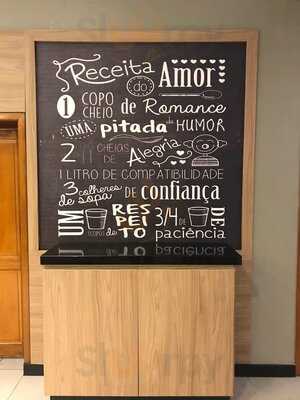 Receita do Amor
1 COPO CHEIO de Romance
UMA pitada de HUMOR
2 CHEIAS DE Alegria
1 LITRO DE COMPATIBILIDADE
3 colheres de sopa DE confiança
UM COPO de RESPEITO
3/4 DE paciência